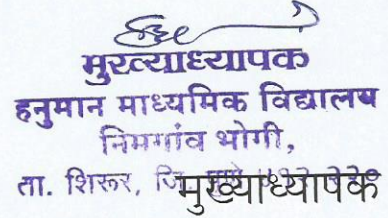 मुख्याध्यापक
हनुमान माध्यमिक विद्यालय
निमगांव भोगी,
ता. शिरूर, जि.
मुख्याध्यापक